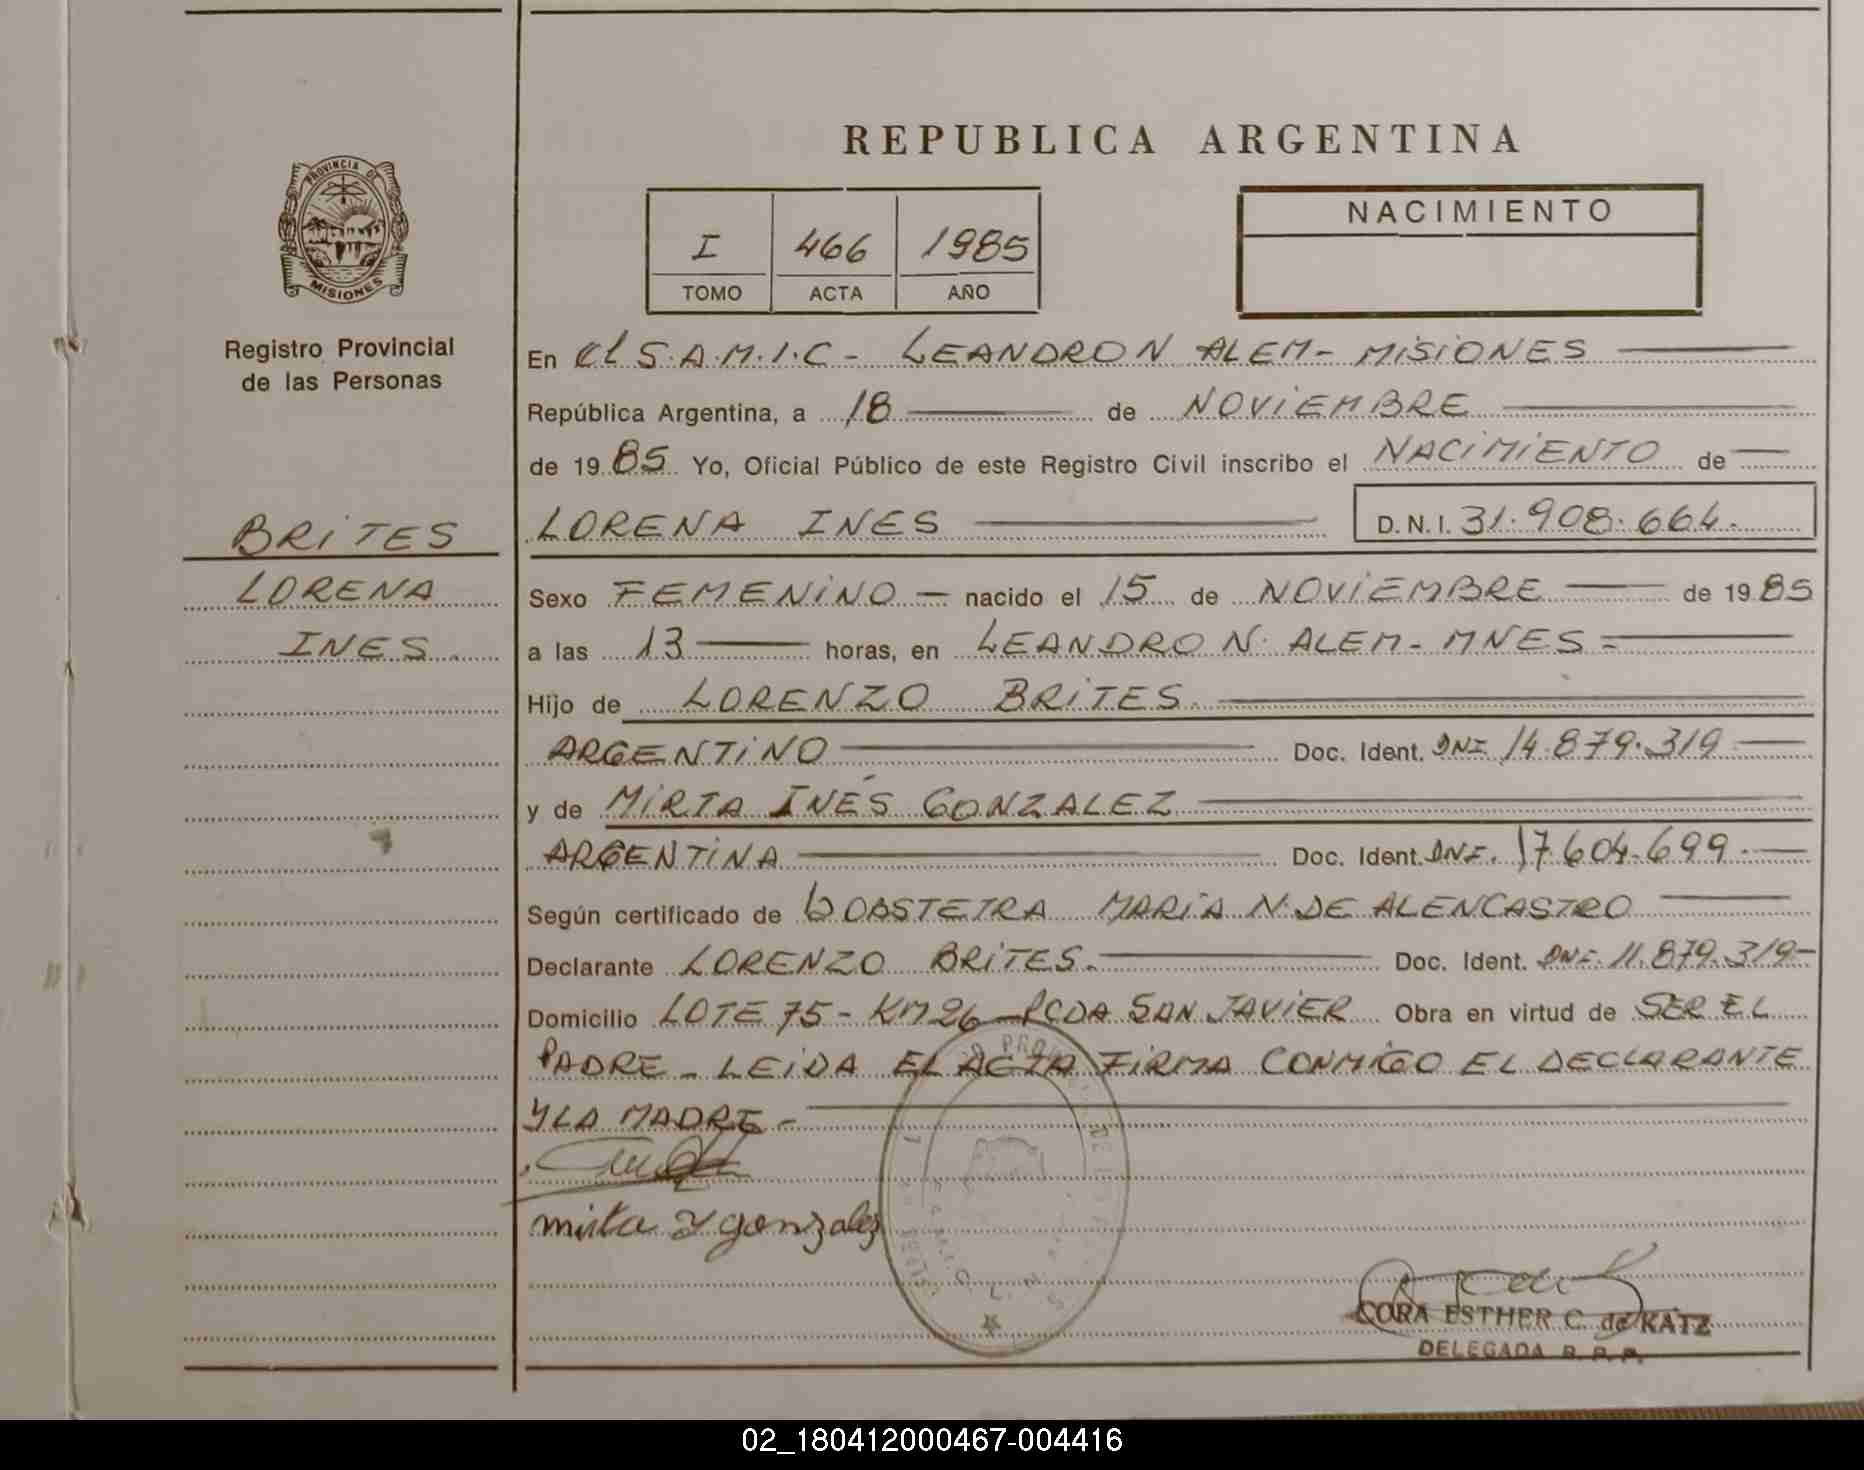 REPUBLICA ARGENTINA
PROVINCIA DE
MISIONES
Registro Provincial
de las Personas
I 466 1985
TOMO ACTA AÑO
NACIMIENTO
En el S.A.M.I.C - LEANDRO N ALEM - MISIONES
República Argentina, a 18 de NOVIEMBRE
de 1985 Yo, Oficial Público de este Registro Civil inscribo el NACIMIENTO de
LORENA INES D.N.I. 31.908.664.
BRITES
LORENA
INES.
Sexo FEMENINO - nacido el 15 de NOVIEMBRE de 1985
a las 13 horas, en LEANDRO N. ALEM - MNES =
Hijo de LORENZO BRITES.
ARGENTINO Doc. Ident. DNI 14.879.319
y de MIRTA INES GONZALEZ
ARGENTINA Doc. Ident. DNI. 17.604.699.
Según certificado de OBSTETRA MARIA N. DE ALENCASTRO
Declarante LORENZO BRITES. Doc. Ident. DNI. 11.879.319-
Domicilio LOTE 75 - KM 26 - PCDA SAN JAVIER Obra en virtud de SER EL
PADRE - LEIDA EL ACTA FIRMA CONMIGO EL DECLARANTE
Y LA MADRE -
mirta Y gonzalez
CORA ESTHER C. de KATZ
DELEGADA R. P. P.
02_180412000467-004416